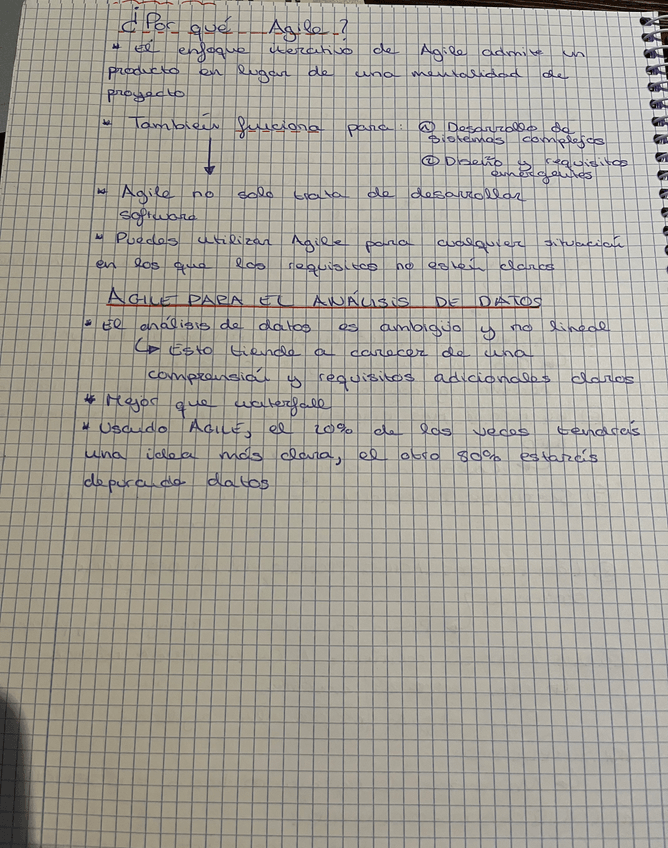 ¿Por qué Agile?
* El enfoque iterativo de Agile admite un
producto en lugar de una mentalidad de
proyecto
* También funciona para: ① Desarrollo de
sistemas complejos
② Diseño y requisitos
emergentes
* Agile no solo trata de desarrollar
software
* Puedes utilizar Agile para cualquier situación
en los que los requisitos no estén claros
AGILE PARA EL ANÁLISIS DE DATOS
* El análisis de datos es ambiguo y no lineal
↳ Esto tiende a carecer de una
comprensión y requisitos adicionales claros
* Mejor que waterfall
* Usando AGILE, el 20% de las veces tendrás
una idea más clara, el otro 80% estarás
depurando datos